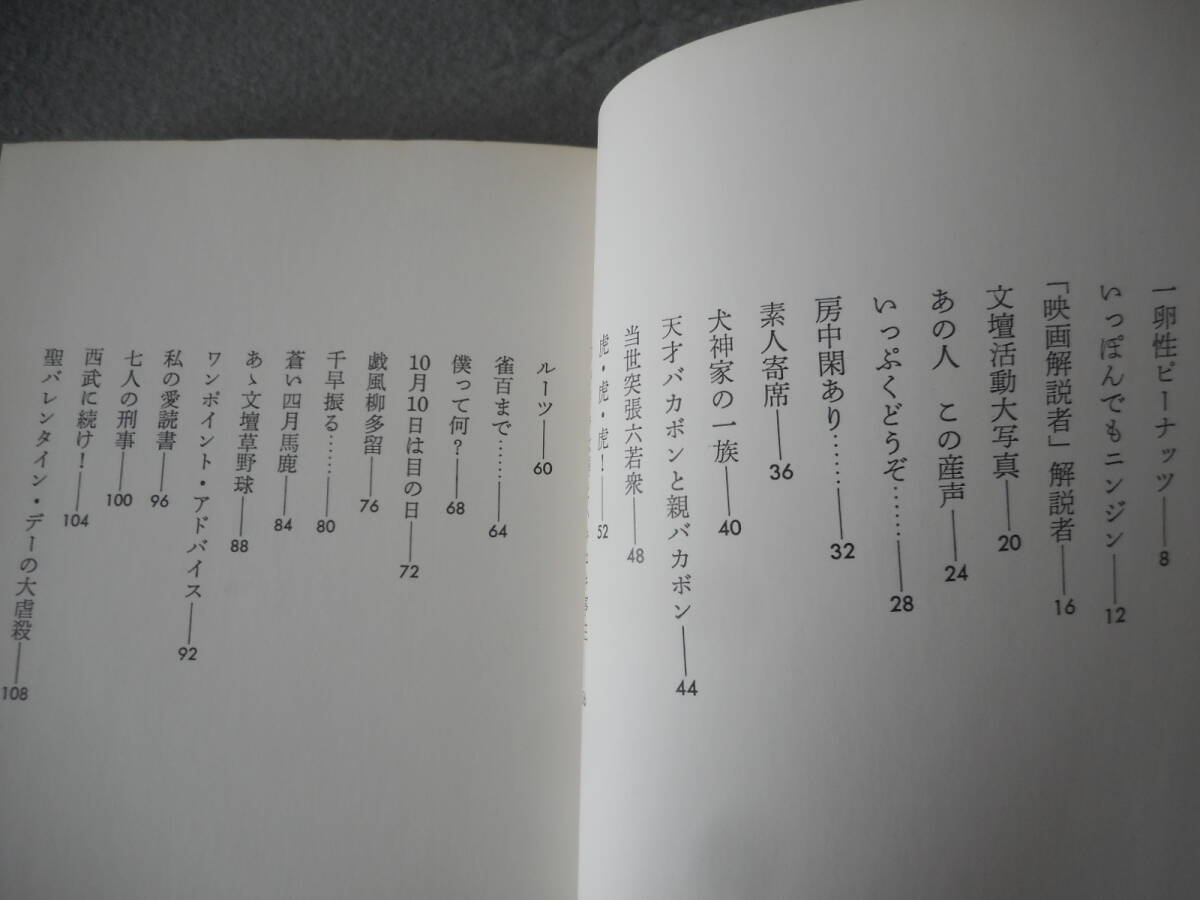 一卵性ピーナッツ——8
いっぽんでもニンジン——12
「映画解説者」解説者——16
文壇活動大写真——20
あの人　この産声——24
いっぷくどうぞ……28
房中閑あり……32
素人寄席——36
犬神家の一族——40
天才バカボンと親バカボン——44
当世突張六若衆——48
虎・虎・虎！——52
ルーツ——60
雀百まで……64
僕って何？——68
10月10日は目の日——72
戯風柳多留——76
千早振る……80
蒼い四月馬鹿——84
あゝ文壇草野球——88
ワンポイント・アドバイス——92
私の愛読書——96
七人の刑事——100
西武に続け！——104
聖バレンタイン・デーの大虐殺——108